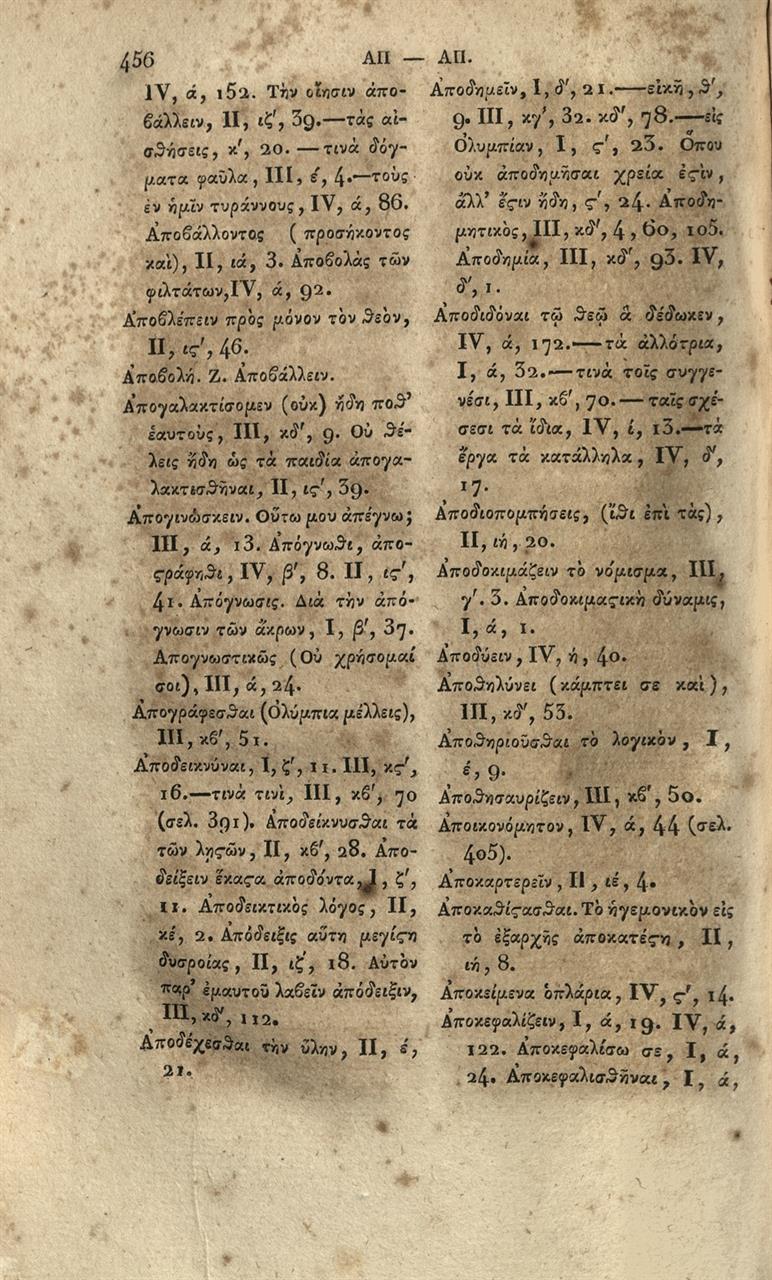 456 ΑΠ — ΑΠ.
IV, ά, 152. Τὴν οἴησιν ἀπο-
βάλλειν, II, ιζ', 39.—τὰς αἰ-
σθήσεις, κ', 20. — τινὰ δόγ-
ματα φαῦλα, III, έ, 4.—τοὺς
ἐν ἡμῖν τυράννους, IV, ά, 86.
Ἀποβάλλοντος ( προσήκοντος
καὶ), II, ιά, 3. Ἀποβολὰς τῶν
φιλτάτων, IV, ά, 92.
Ἀποβλέπειν πρὸς μόνον τὸν θεὸν,
II, ις', 46.
Ἀποβολή. Ζ. Ἀποβάλλειν.
Ἀπογαλακτίσομεν (οὐκ) ἤδη ποθ'
ἑαυτοὺς, III, κδ', 9. Οὐ θέ-
λεις ἤδη ὡς τὰ παιδία ἀπογα-
λακτισθῆναι, II, ις', 39.
Ἀπογινώσκειν. Οὕτω μου ἀπέγνω;
III, ά, 13. Ἀπόγνωθι, ἀπο-
ςράφηθι, IV, β', 8. II, ις',
41. Ἀπόγνωσις. Διὰ τὴν ἀπό-
γνωσιν τῶν ἄκρων, I, β', 37.
Ἀπογνωστικῶς (Οὐ χρήσομαί
σοι), III, ά, 24.
Ἀπογράφεσθαι (Ὀλύμπια μέλλεις),
III, κβ', 51.
Ἀποδεικνύναι, I, ζ', 11. III, κς',
16.—τινὰ τινὶ, III, κβ', 70
(σελ. 391). Ἀποδείκνυσθαι τὰ
τῶν λῃςῶν, II, κβ', 28. Ἀπο-
δείξειν ἕκαςα ἀποδόντα, I, ζ',
11. Ἀποδεικτικὸς λόγος, II,
κέ, 2. Ἀπόδειξις αὕτη μεγίςη
δυσροίας, II, ιζ', 18. Αὐτὸν
παρ' ἐμαυτοῦ λαβεῖν ἀπόδειξιν,
III, κδ', 112.
Ἀποδέχεσθαι τὴν ὕλην, II, έ,
21.
Ἀποδημεῖν, I, δ', 21.—εἰκῆ, θ',
9. III, κγ', 32. κδ', 78.—εἰς
Ὀλυμπίαν, I, ς', 23. Ὅπου
οὐκ ἀποδημῆσαι χρεία ἐςὶν,
ἀλλ' ἔςιν ἤδη, ς', 24. Ἀποδη-
μητικὸς, III, κδ', 4, 60, 105.
Ἀποδημία, III, κδ', 93. IV,
δ', 1.
Ἀποδιδόναι τῷ θεῷ ἃ δέδωκεν,
IV, ά, 172.—τὰ ἀλλότρια,
I, ά, 32.—τινὰ τοῖς συγγε-
νέσι, III, κβ', 70.—ταῖς σχέ-
σεσι τὰ ἴδια, IV, ί, 13.—τὰ
ἔργα τὰ κατάλληλα, IV, δ',
17.
Ἀποδιοπομπήσεις, (ἴθι ἐπὶ τὰς),
II, ιή, 20.
Ἀποδοκιμάζειν τὸ νόμισμα, III,
γ'. 3. Ἀποδοκιμαςικὴ δύναμις,
I, ά, 1.
Ἀποδύειν, IV, ή, 40.
Ἀποθηλύνει (κάμπτει σε καὶ),
III, κδ', 53.
Ἀποθηριοῦσθαι τὸ λογικὸν, I,
έ, 9.
Ἀποθησαυρίζειν, III, κβ', 50.
Ἀποικονόμητον, IV, ά, 44 (σελ.
405).
Ἀποκαρτερεῖν, II, ιέ, 4.
Ἀποκαθίςασθαι. Τὸ ἡγεμονικὸν εἰς
τὸ ἐξαρχῆς ἀποκατέςη, II,
ιή, 8.
Ἀποκείμενα ὁπλάρια, IV, ς', 14.
Ἀποκεφαλίζειν, I, ά, 19. IV, ά,
122. Ἀποκεφαλίσω σε, I, ά,
24. Ἀποκεφαλισθῆναι, I, ά,